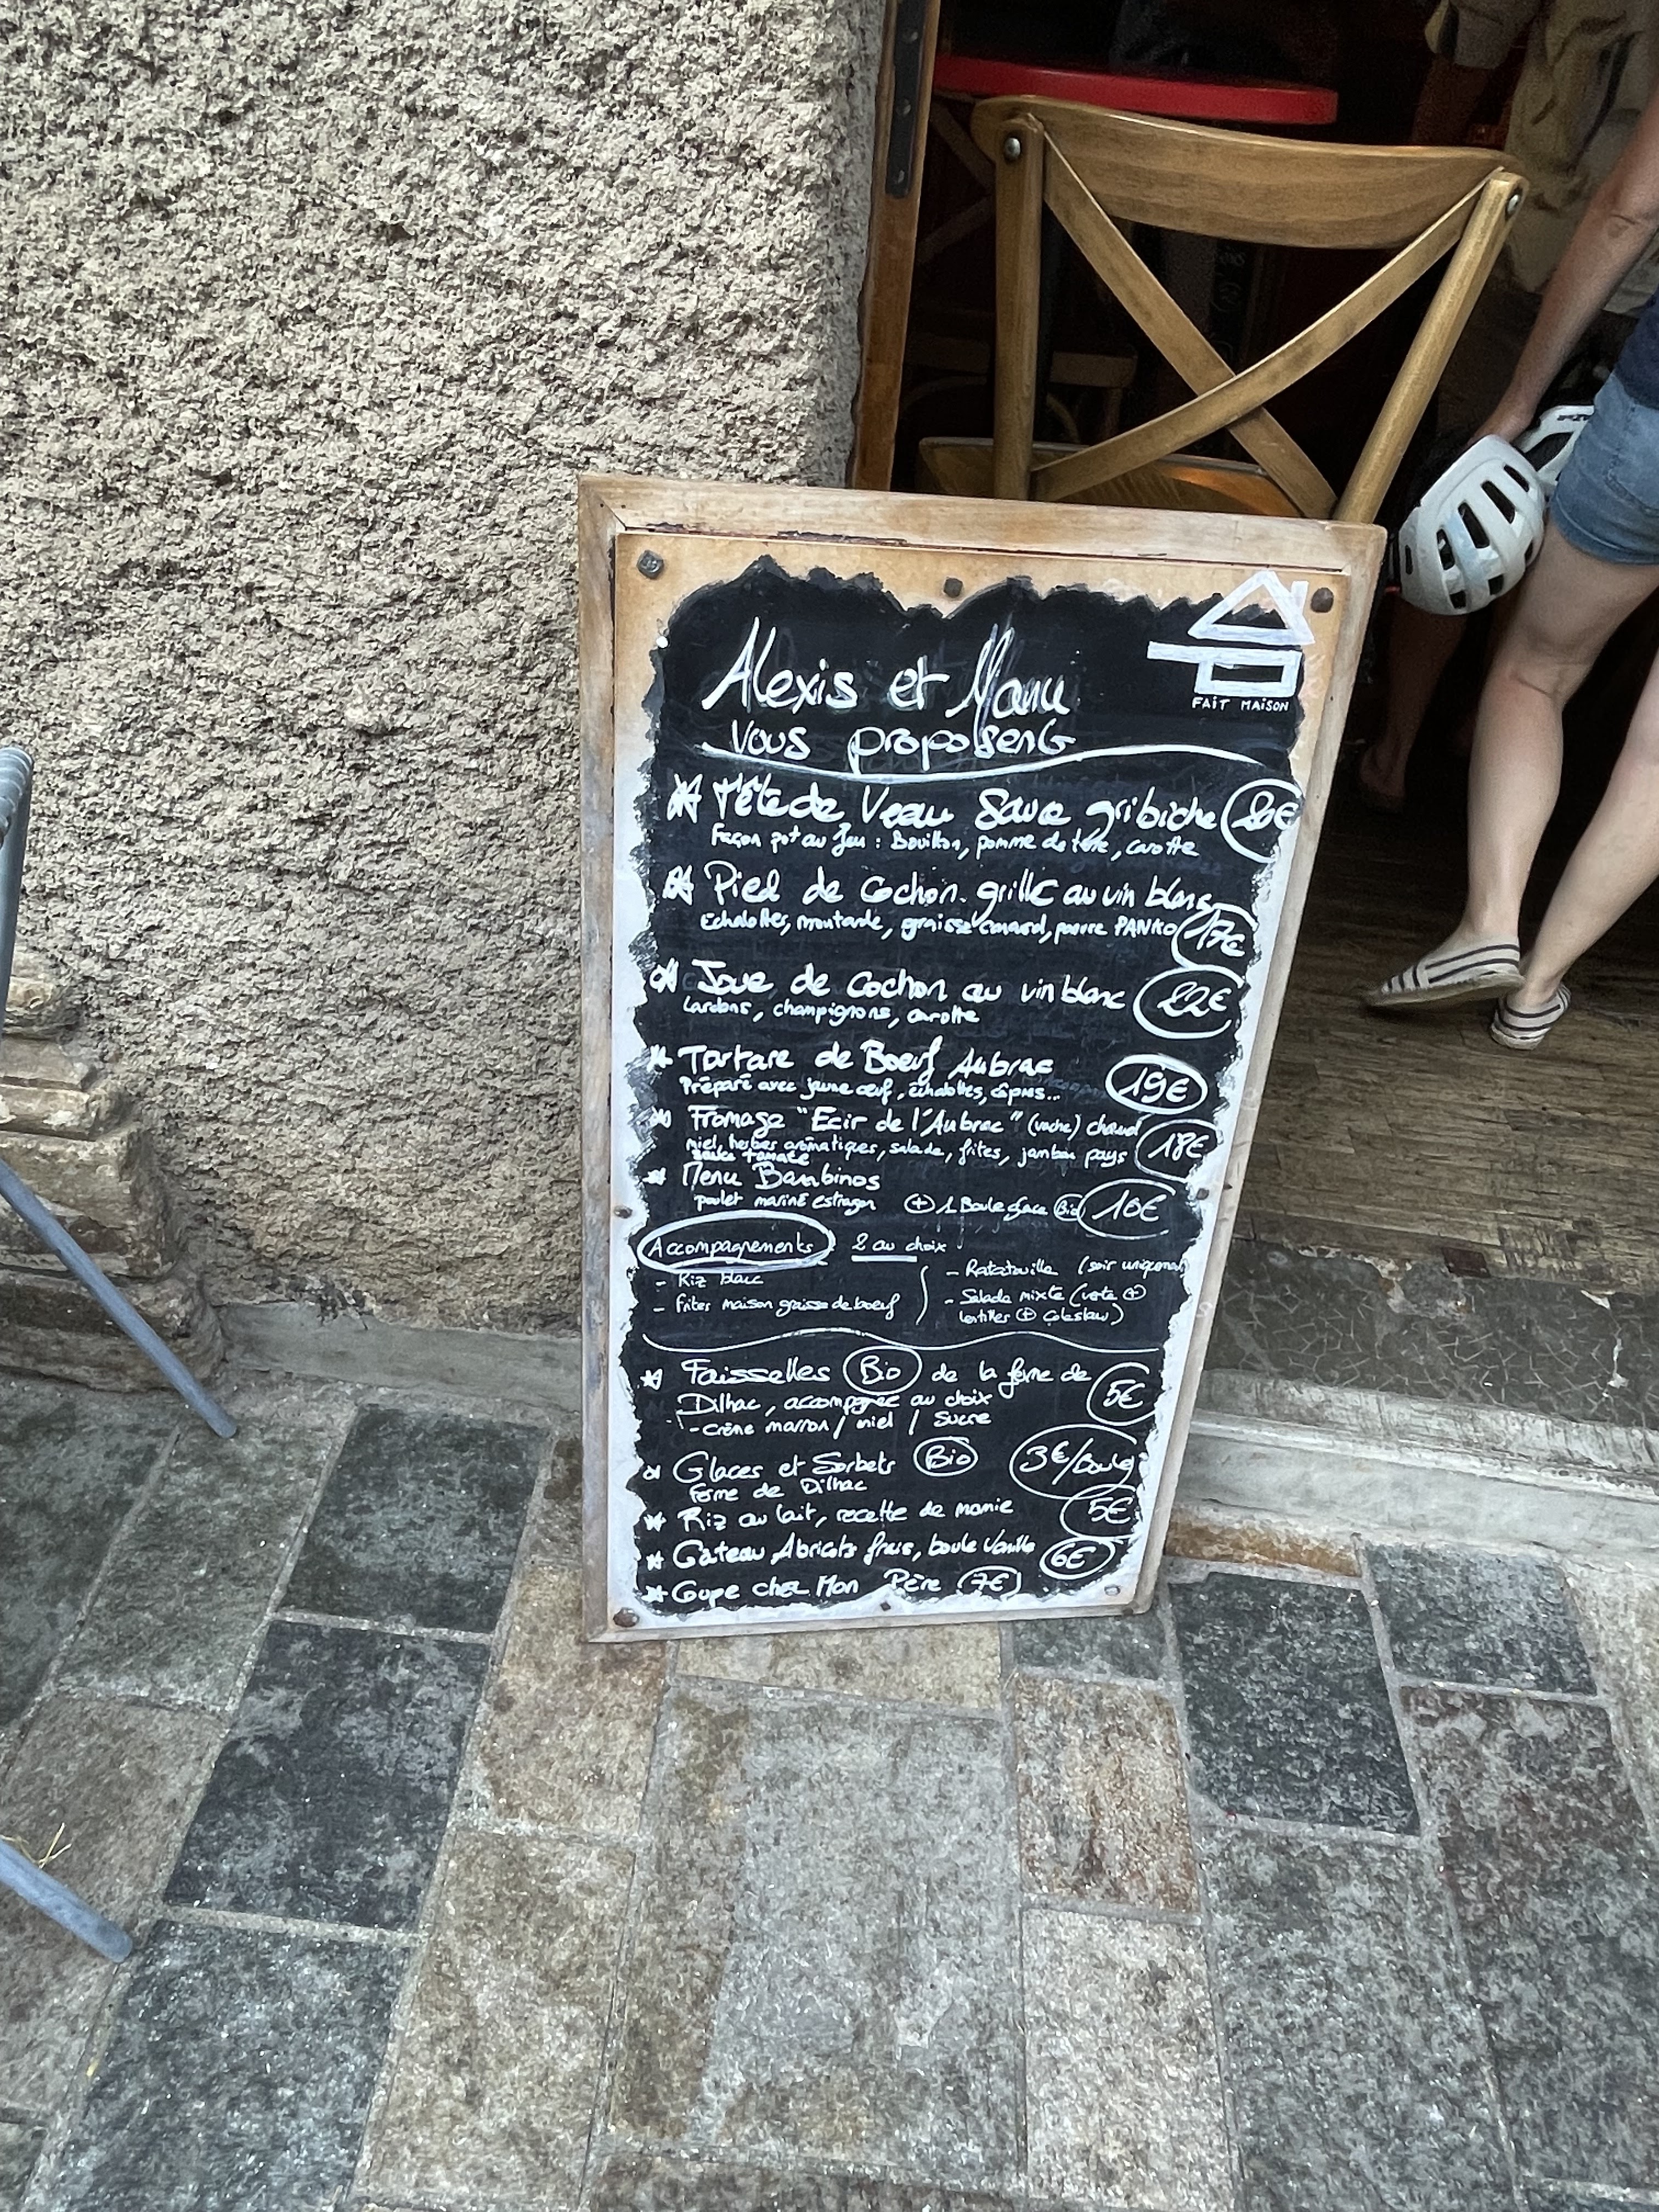 FAIT MAISON
Alexis et Manu
Vous proposent
Tête de Veau Sauce gribiche
Façon pot au feu : Bouillon, pomme de terre, carotte
Pied de Cochon grillé au vin blanc 17€
Echalottes, moutarde, graisse canard, panure PANKO
Joue de Cochon au vin blanc 22€
Lardons, champignons, carotte
Tartare de Boeuf Aubrac 19€
Préparé avec jaune œuf, échalottes, câpres...
Fromage "Ecir de l'Aubrac" (vache) chaud 18€
miel, herbes aromatiques, salade, frites, jambon pays
sauce tomate
Menu Bambinos
poulet mariné estragon + 1 Boule glace Bio 10€
Accompagnements 2 au choix
- Riz blanc
- Frites maison graisse de boeuf
- Ratatouille (soir uniquement)
- Salade mixte (verte +
lentilles + Coleslaw)
Faisselles Bio de la ferme de 5€
Dilhac, accompagnée au choix
- crème marron / miel / Sucre
Glaces et Sorbets Bio 3€/Boule
ferme de Dilhac
Riz au lait, recette de mamie 5€
Gateau Abricots frais, boule Vanille 6€
Coupe chez Mon Père 7€